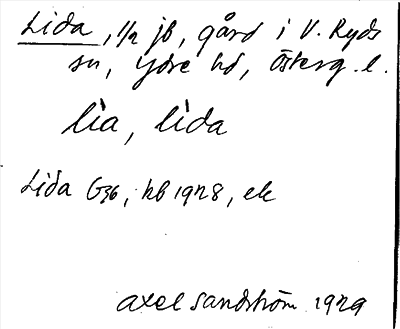 Lida, 1/2 jb, gård i V. Ryds
sn, Ydre hd, Österg. l.
lìa, lìda
Lida G36, hb 1928, ek
Axel Sandström 1929